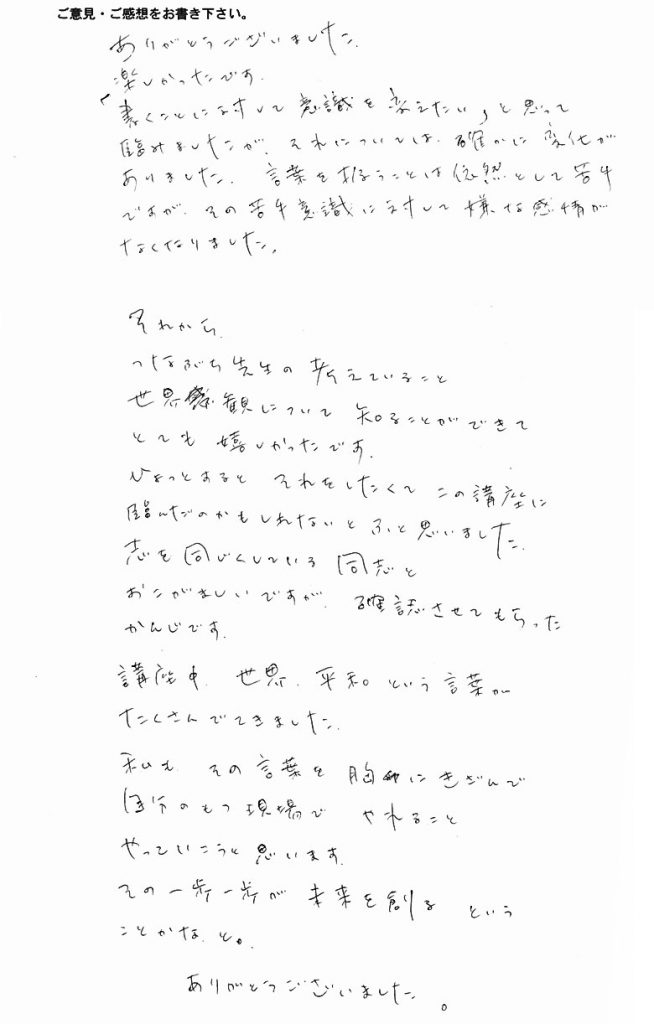 ご意見・ご感想をお書き下さい。
ありがとうございました。
楽しかったです。
「書くことに対して意識を変えたい」と思って
臨みましたが、それについては、確かに変化が
ありました。言葉を扱うことは依然として苦手
ですが、その苦手意識に対して嫌な感情が
なくなりました。
それから、
つなぶち先生の考えていること
世界観について知ることができて
とても嬉しかったです。
ひょっとすると それをしたくて この講座に
臨んだのかもしれないと ふと思いました。
志を同じくしている 同志と
おこがましいですが、確認させてもらった
かんじです。
講座中、世界、平和。という言葉が
たくさんでてきました。
私も その言葉を 胸にきざんで
自分のもつ現場で やれること
やっていこうと思います。
その一歩一歩が 未来を創る という
ことかな、と。
ありがとうございました。